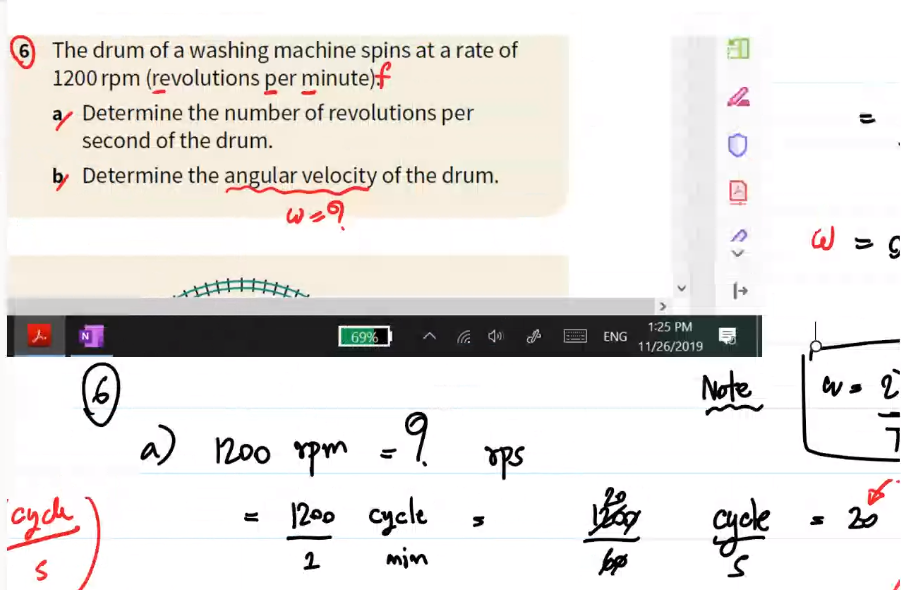 6 The drum of a washing machine spins at a rate of
1200 rpm (revolutions per minute) f
a Determine the number of revolutions per
second of the drum.
b Determine the angular velocity of the drum.
ω = ?
=
ω =
69%
ENG
1:25 PM
11/26/2019
6
Note
ω = 2
T
a) 1200 rpm = ? rps
cycle
s
= 1200 cycle = 1200 cycle = 20
1 min 60 s
20